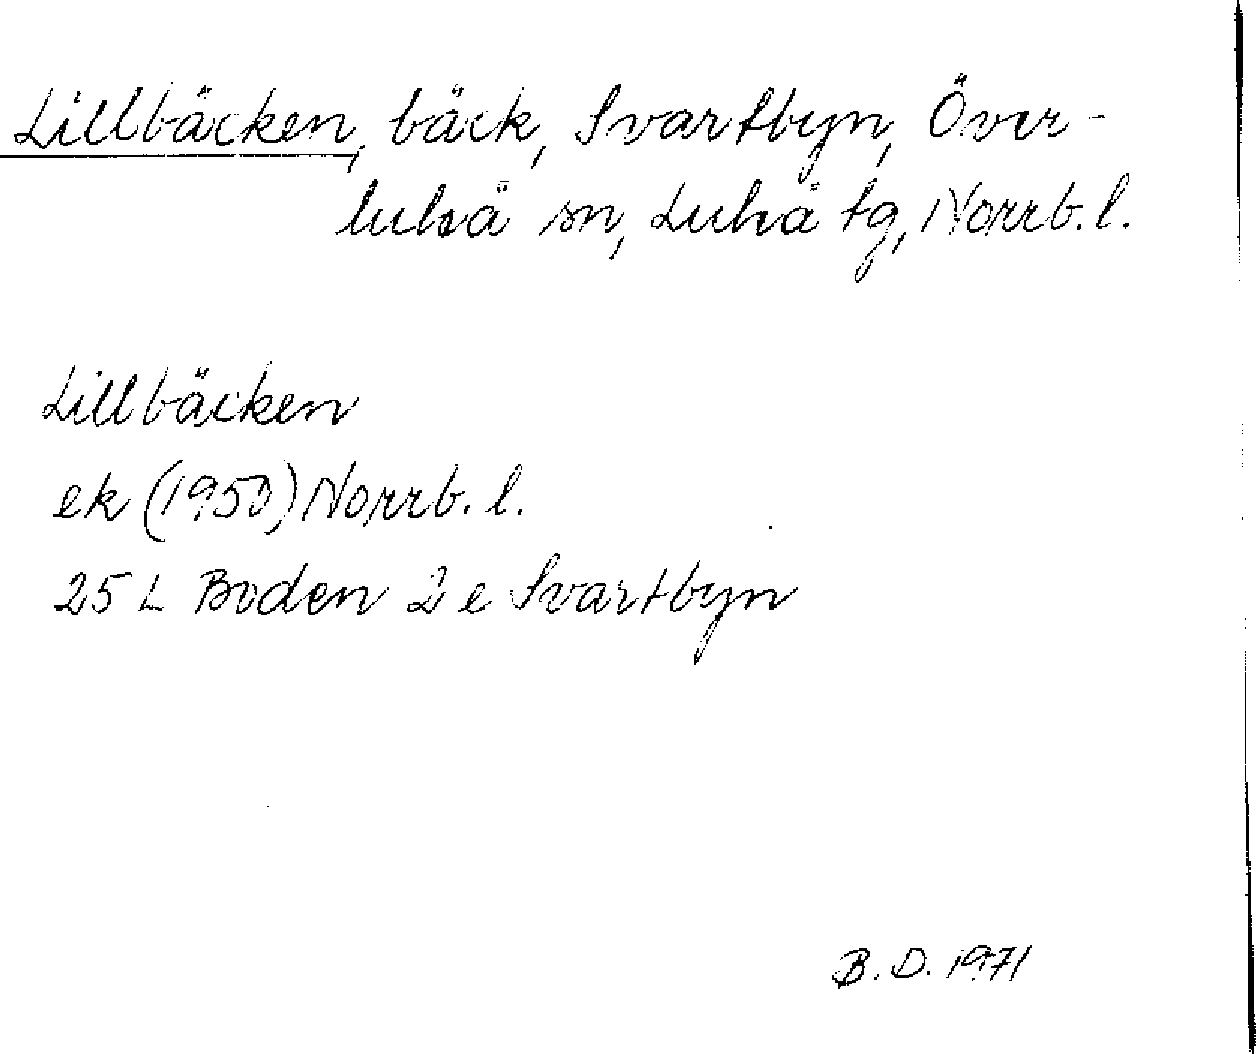 Lillbäcken, bäck, Svartbyn, Över-
luleå sn, Luleå tg, Norrb. l.
Lillbäcken
ek (1950) Norrb. l.
25 L Boden 2 e Svartbyn
B. D. 1971